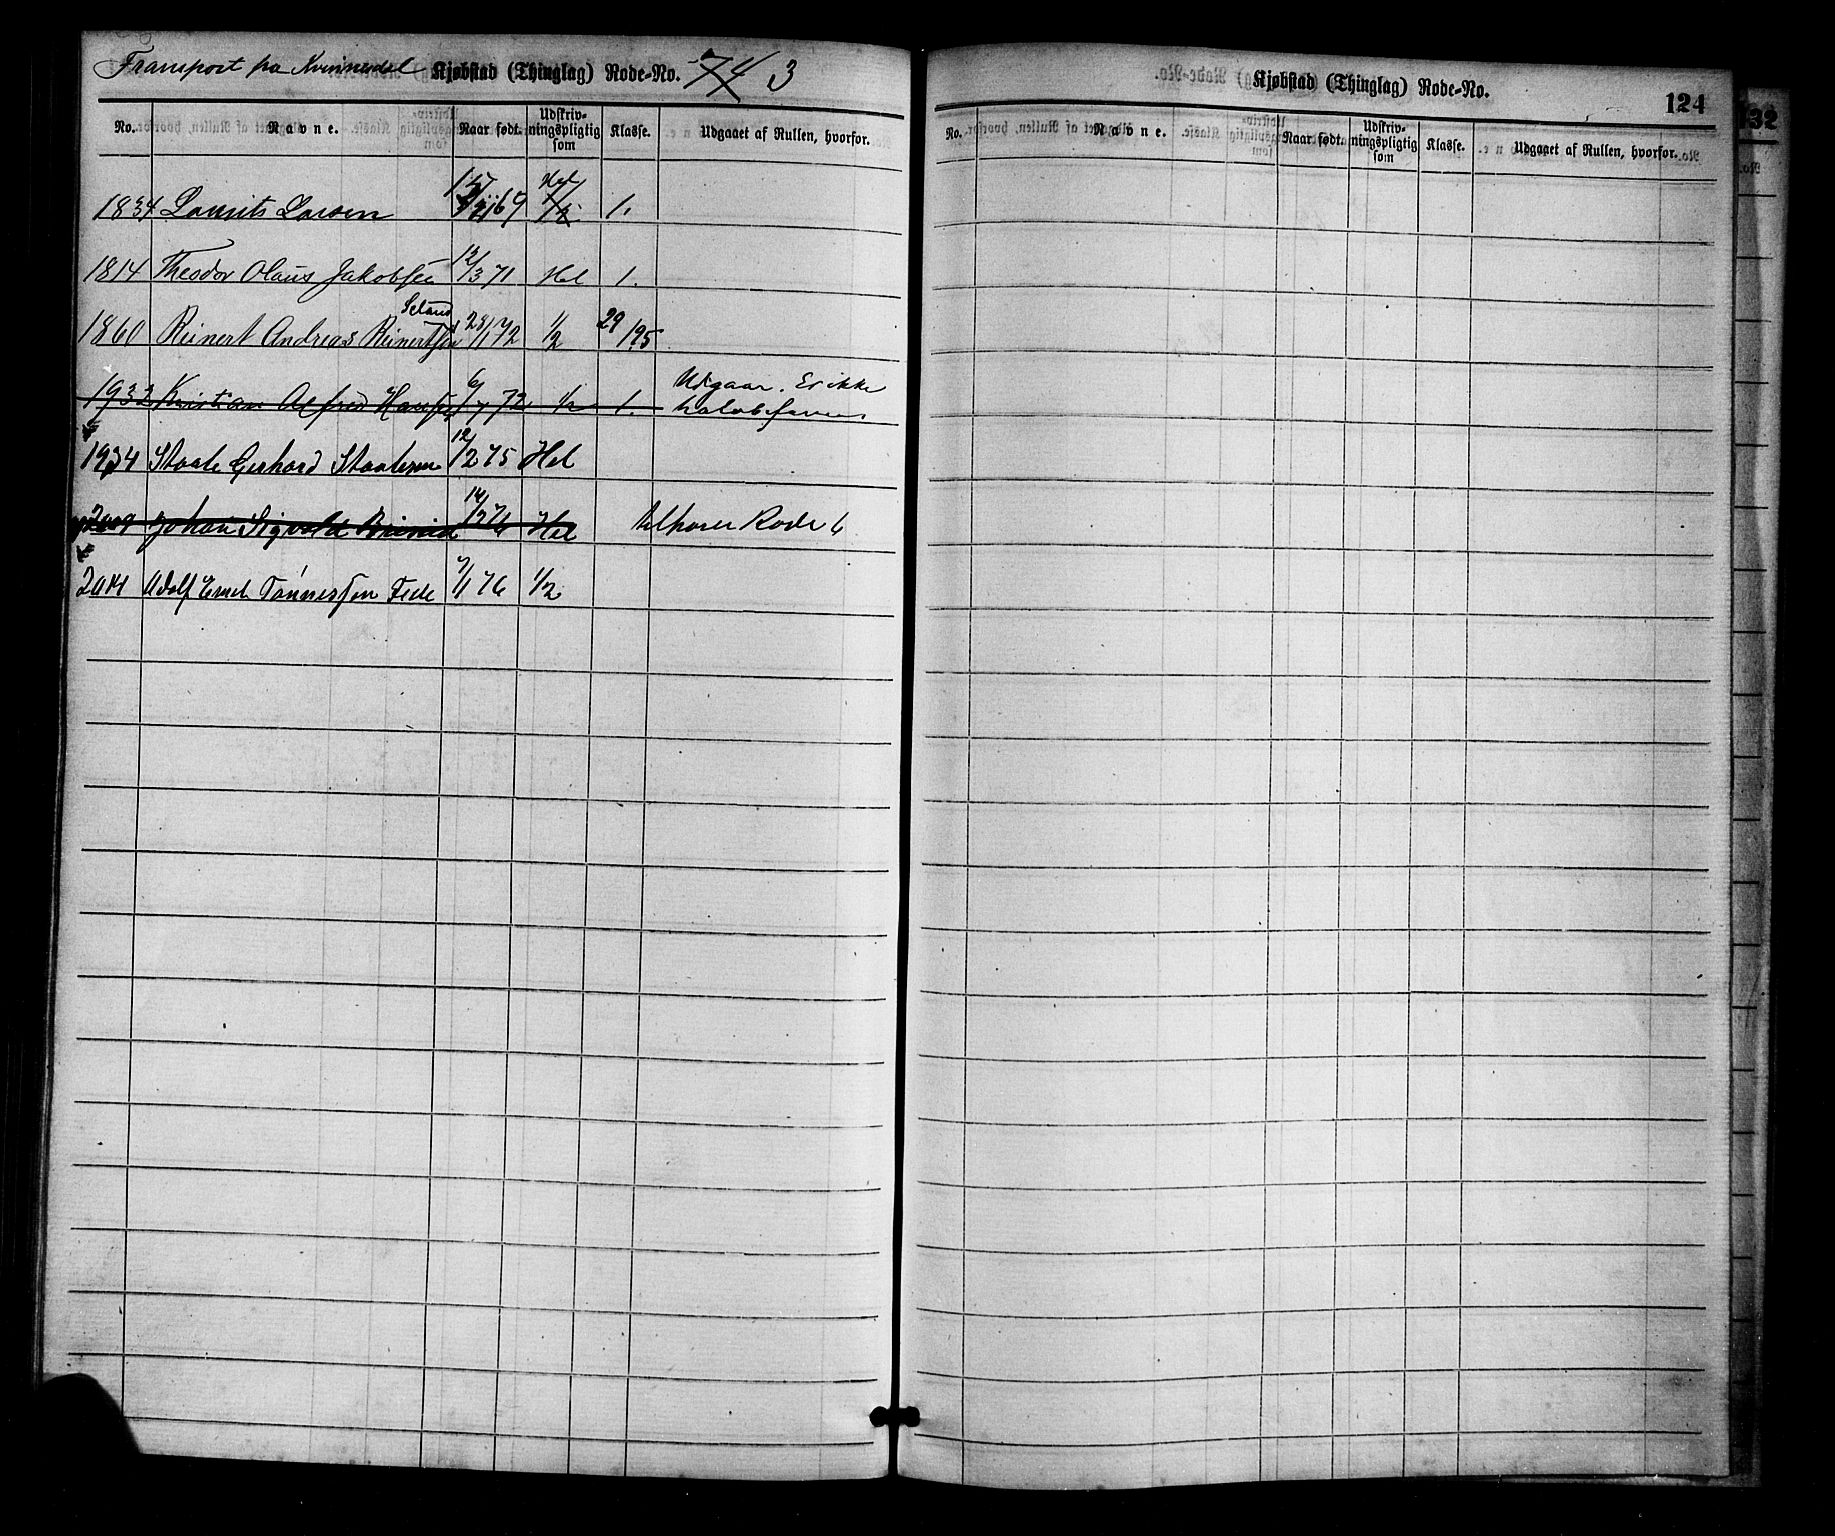 Transport fra Kvinnesdal Kjøbstad (Thinglag) Rode-No. 74 3
No. Navne. Naar født. Udskrivningspligtig som Klasse. Udgaaet af Rullen, hvorfor.
1834 Laurits Larsen 69 Hel 1/2 1.
1814 Theodor Olaus Jakobsen 12/3 71 Hel 1.
Seland
1860 Reinert Andreas Reinertsen 28/1 72 1/2 29 195
1932 Kristian Alfred Hansen 6/7 72 1/2 1. Udgaar. Er ikke
1934 Staale Gerhard Staalesen 12/2 75 Hel
2009 Johan Sigvald 14/2 76 Hel tilhører Rode 6
2014 Adolf Emel Tønnessen Fede 7/1 76 1/2
Kjøbstad (Thinglag) Rode-No.
124
No. Navne. Naar født. Udskrivningspligtig som Klasse. Udgaaet af Rullen, hvorfor.
132